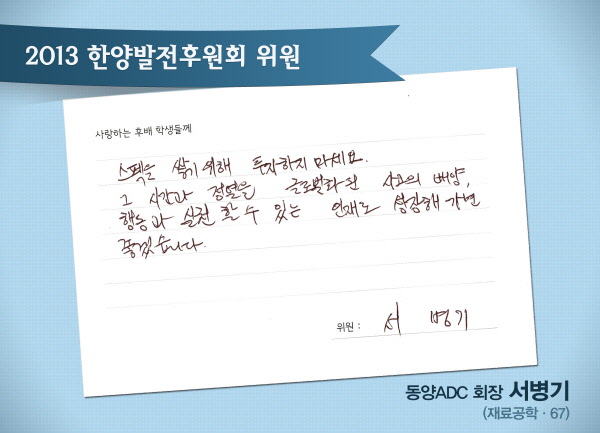 2013 한양발전후원회 위원
사랑하는 후배 학생들께
스펙을 쌓기 위해 투자하지 마세요.
그 시간과 정열을 글로벌화된 사고의 배양,
행동과 실천 할 수 있는 인재로 성장해 가면
좋겠습니다.
위원 : 서 병기
동양ADC 회장 서병기
(재료공학 · 67)